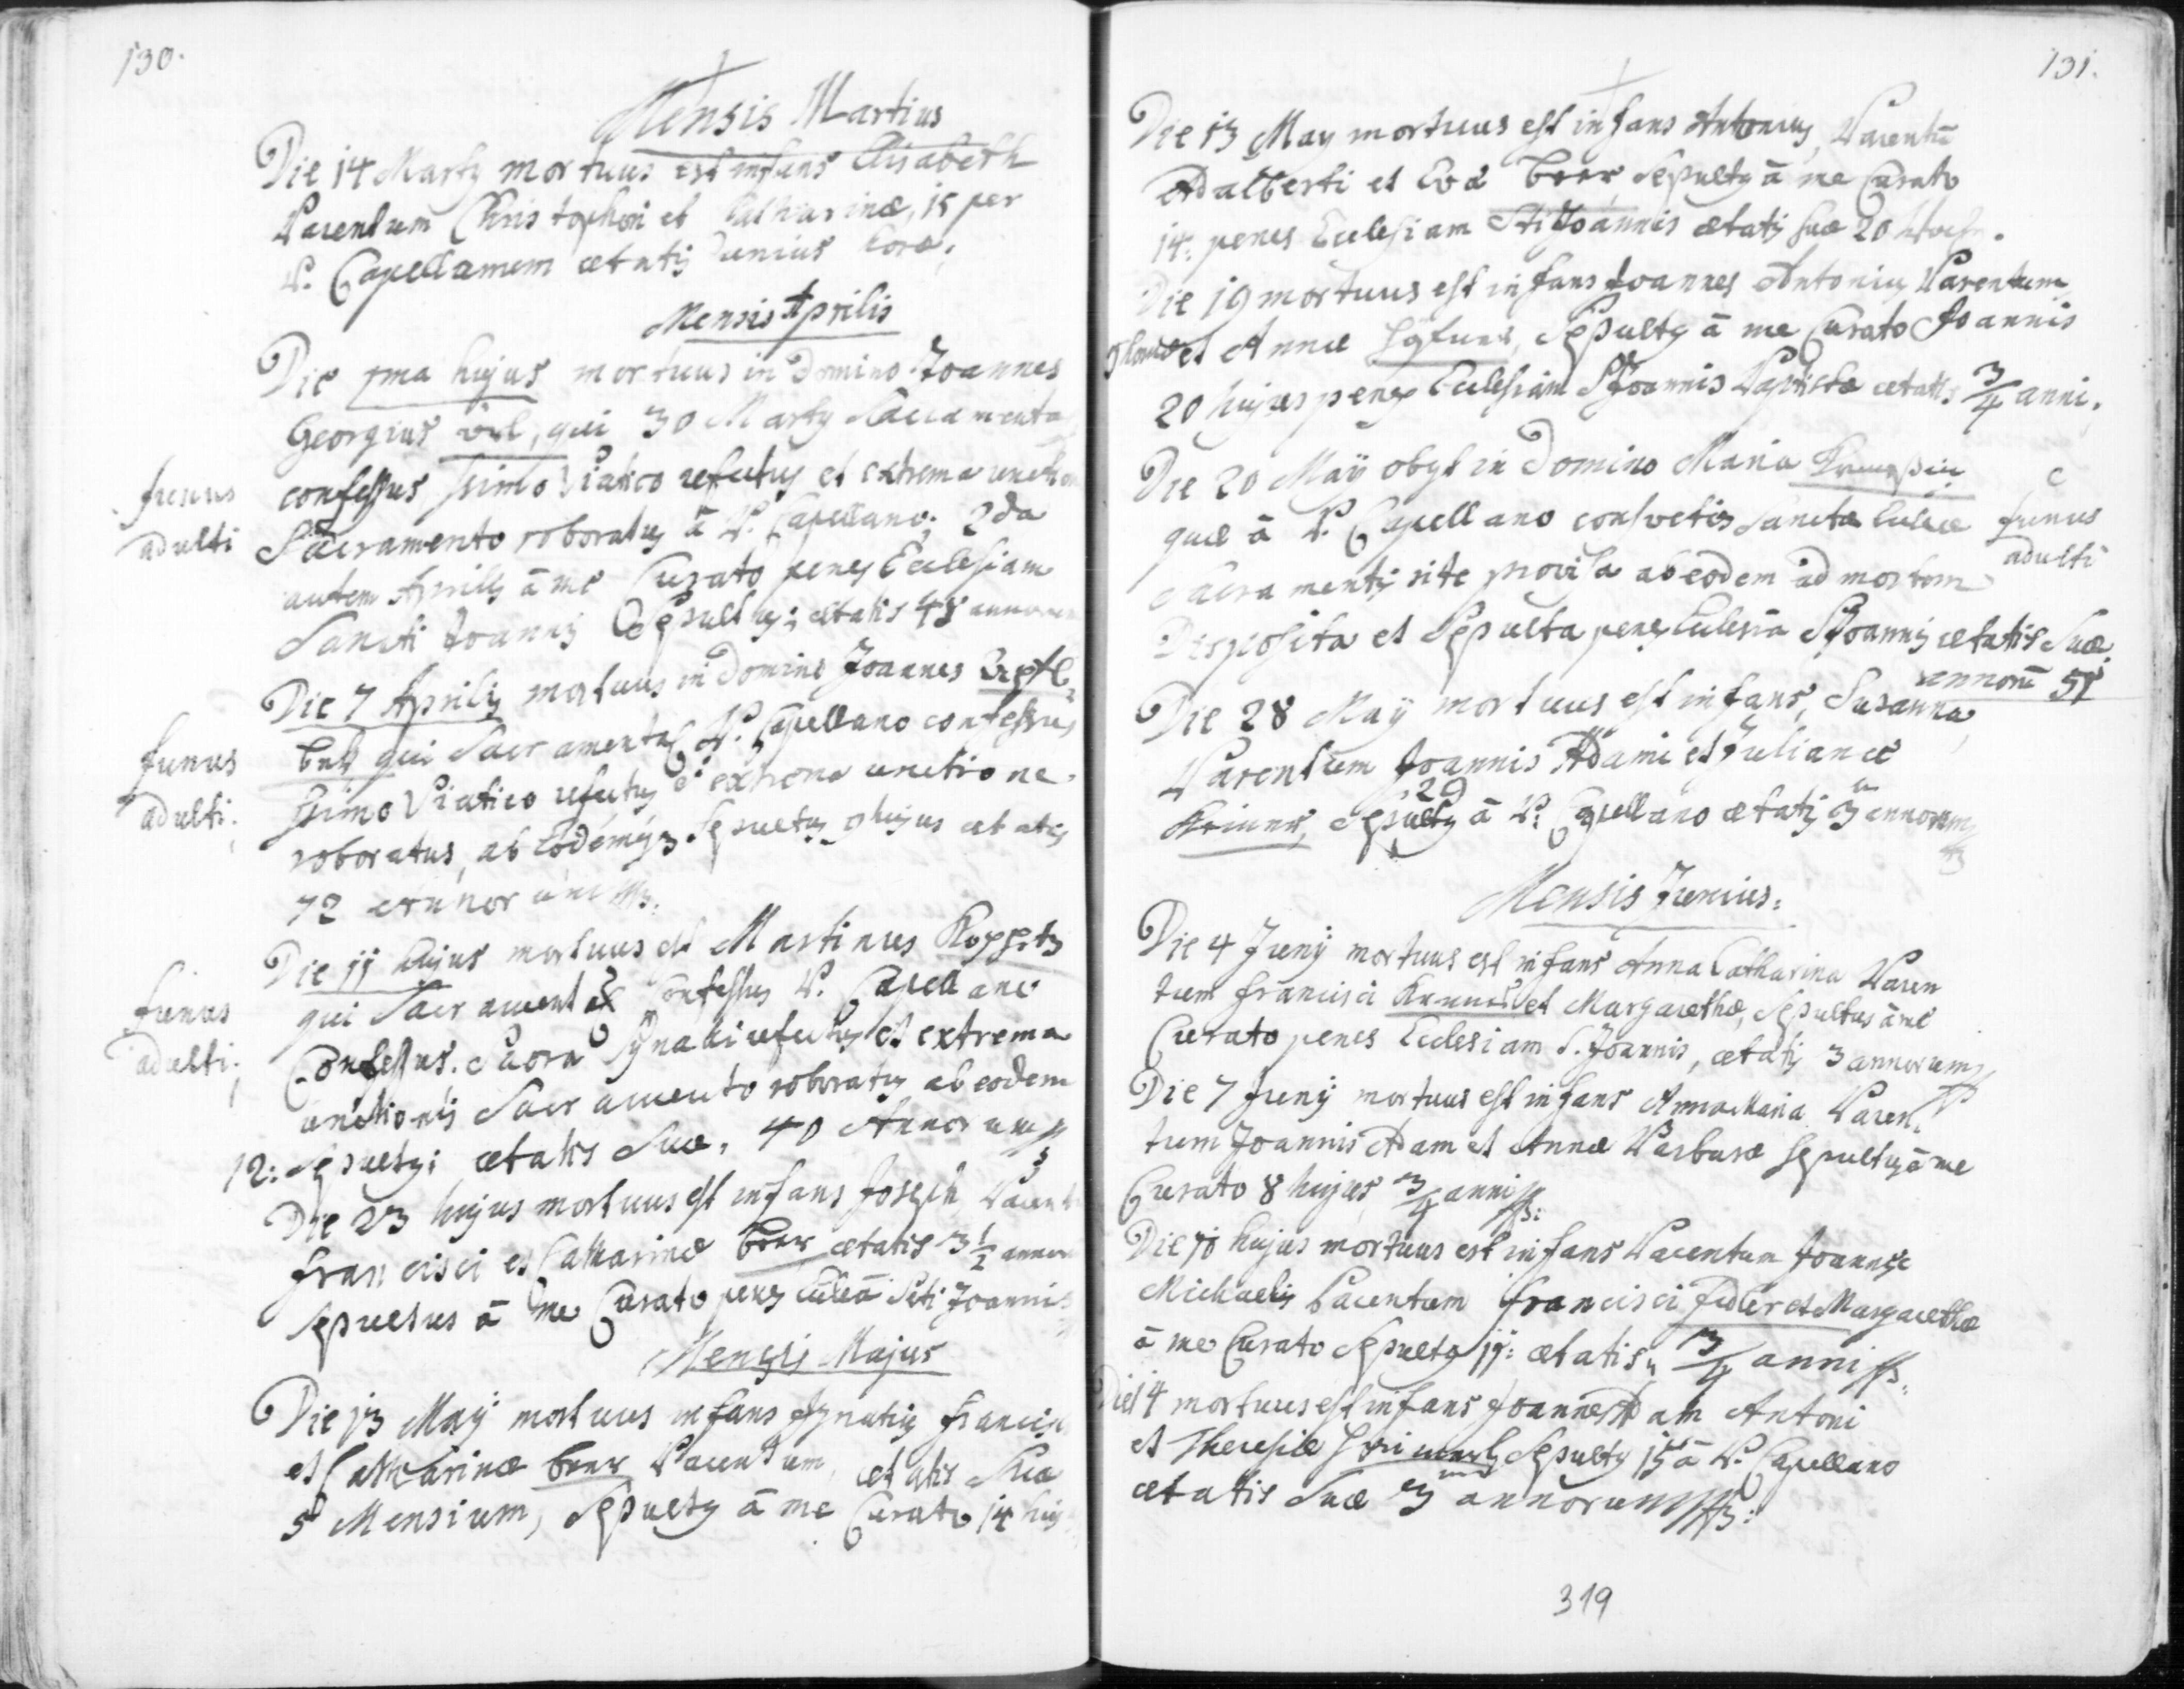 130.
Mensis Martius
Die 14 Martÿ mortuus est infans Elisabeth
Parentum Christophori et Catharinæ, 15 per
P. Capellanum ætatis unius horæ.
Mensis Aprilis
Die 1ma hujus mortuus in Domino Joannes
Georgius, qui 30 Martÿ Sacramenta
confessus ssimo Viatico refectus et extrema unction
funus
adulti
Sacramento roboratus â P. Capellano; 2da
autem Aprilis â me Curato penes Ecclesiam
Sancti Joannis Sepultus; ætatis 48 annorum
Die 7 Aprilis mortuus in Domino Joannes
funus
adulti:
qui Sacramentas P. Capellano confessus
ssimo Viatico refectus & extrema unctione
roboratus, ab eodémq3 Sepultus 9 hujus ætatis
72 annorum
Die 11 hujus mortuus est Martinus
funus
adulti;
qui Sacramental Confessus P. Capellano
Confessus. Sacra Synaxi refectus et extrema
unctionis Sacramento roboratus ab eodem
12: Sepultus; ætatis Suæ, 40 Annorum
Die 23 hujus mortuus est infans Joseph Parent
Francisci et Catharinæ Beer ætatis 3 1/2 annor
Sepultus â me Curato penes Ecclêa Scti Joannis
Mensis Majus
Die 13 Maÿ mortuus infans Ignatius Francis
et Catharinæ Beer Parentum, ætatis Suæ
5 Mensium, Sepultus â me Curato 14 huj
131.
Die 13 May mortuus est infans Antonius, Parentũ
Adalberti et Evæ Beer Sepultus â me Curato
14: penes Ecclesiam Sti Joannis ætatis suæ 20
Die 19 mortuus est infans Joannes Antonius Parentum
et Annæ, Sepultus â me Curato Joannis
20 hujus penes Ecclesiam S Joannis Baptistæ ætatis 3/4 anni.
Die 20 Maÿ obyt in Domino Maria
quæ â P. Capellano consvetis Sanctæ Ecclæ
funus
adulti
Sacramentis rite provisa ab eodem ad mortem
Disposita et Sepulta penes Ecclesiã S Joannis ætatis Suæ
annorũ 51
Die 28 Maÿ mortuus est infans, Susanna,
Parentum Joannis Adami et Julianæ
29
Sepultus â P. Capellano ætatis 3 annorum
Mensis Junius:
Die 4 Junÿ mortuus est infans Anna Catharina Paren
tum Francisci et Margarethæ, Sepultus â me
Curato penes Ecclesiam S. Joannis, ætatis 3 annorum
Die 7 Junÿ mortuus est infans Anna Maria Paren.
tum Joannis Adam et Annæ Barbaræ sepultus â me
Curato 8 hujus 3/4 anni
Die 10 hujus mortuus est infans Parentum Joannes
Michaelis Parentum Francisci Fidler et Margarethæ
â me Curato Sepultus 11: ætatis 3/4 anni
Die 14 mortuus est infans Joannes Adam Antoni
et Theresiæ Sepultus 15 â P. Capellano
ætatis Suæ 3 annorum
319